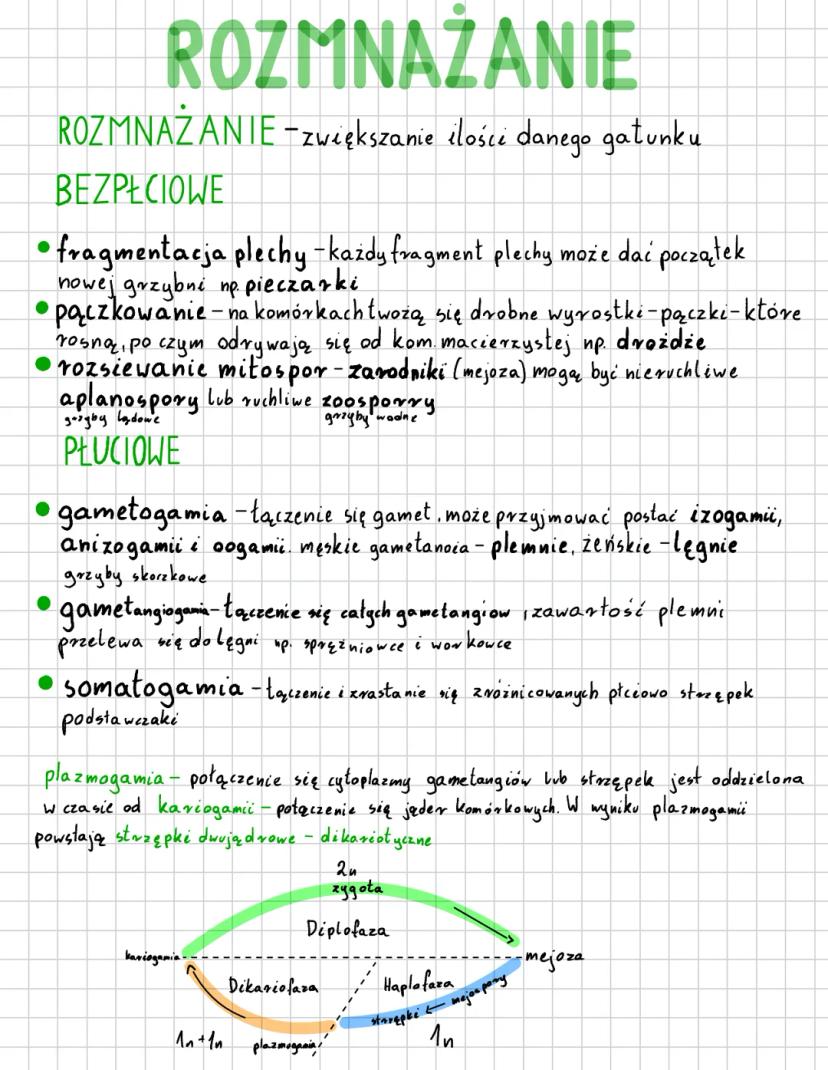 ROZMNAŻANIE
ROZMNAŻANIE - zwiększanie ilości danego gatunku
BEZPŁCIOWE
• fragmentacja plechy - każdy fragment plechy może dać początek
nowej grzybni np. pieczarki
• pączkowanie - na komórkach twożą się drobne wyrostki - pączki - które
rosną, po czym odrywają się od kom. macierzystej np. drożdże
• rozsiewanie mitospor - zarodniki (mejoza) mogą być nieruchliwe
aplanospory lub ruchliwe zoosporry
grzyby lądowe grzyby wodne
PŁUCIOWE
• gametogamia - łączenie się gamet, może przyjmować postać izogamii,
anizogamii i oogamii. męskie gametanoia - plemnie, żeńskie - lęgnie
grzyby skorzkowe
• gametangiogamia - łączenie się całych gametangiow, zawartość plemni
przelewa się do lęgni np. sprężniowce i workowce
• somatogamia - łączenie i zrastanie się zróżnicowanych płciowo strzępek
podstawczaki
plazmogamia - połączenie się cytoplazmy gametangiów lub strzępek jest oddzielona
w czasie od kariogamii - połączenie się jąder komórkowych. W wyniku plazmogamii
powstają strzępki dwująd­rowe - dikariotyczne
2n
zygota
Diplofaza
kariogamia mejoza
Dikariofaza Haplofaza
mejospory
strzępki
1n+1n plazmogamia 1n